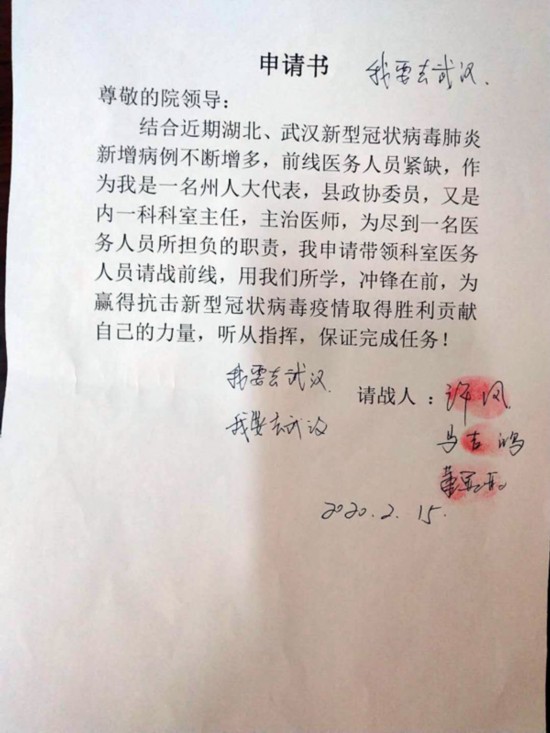 申请书 我要去武汉.
尊敬的院领导：
结合近期湖北、武汉新型冠状病毒肺炎
新增病例不断增多，前线医务人员紧缺，作
为我是一名州人大代表，县政协委员，又是
内一科科室主任，主治医师，为尽到一名医
务人员所担负的职责，我申请带领科室医务
人员请战前线，用我们所学，冲锋在前，为
赢得抗击新型冠状病毒疫情取得胜利贡献
自己的力量，听从指挥，保证完成任务！
我要去武汉
请战人：许凤
我要去武汉
马吉鸿
2020.2.15.